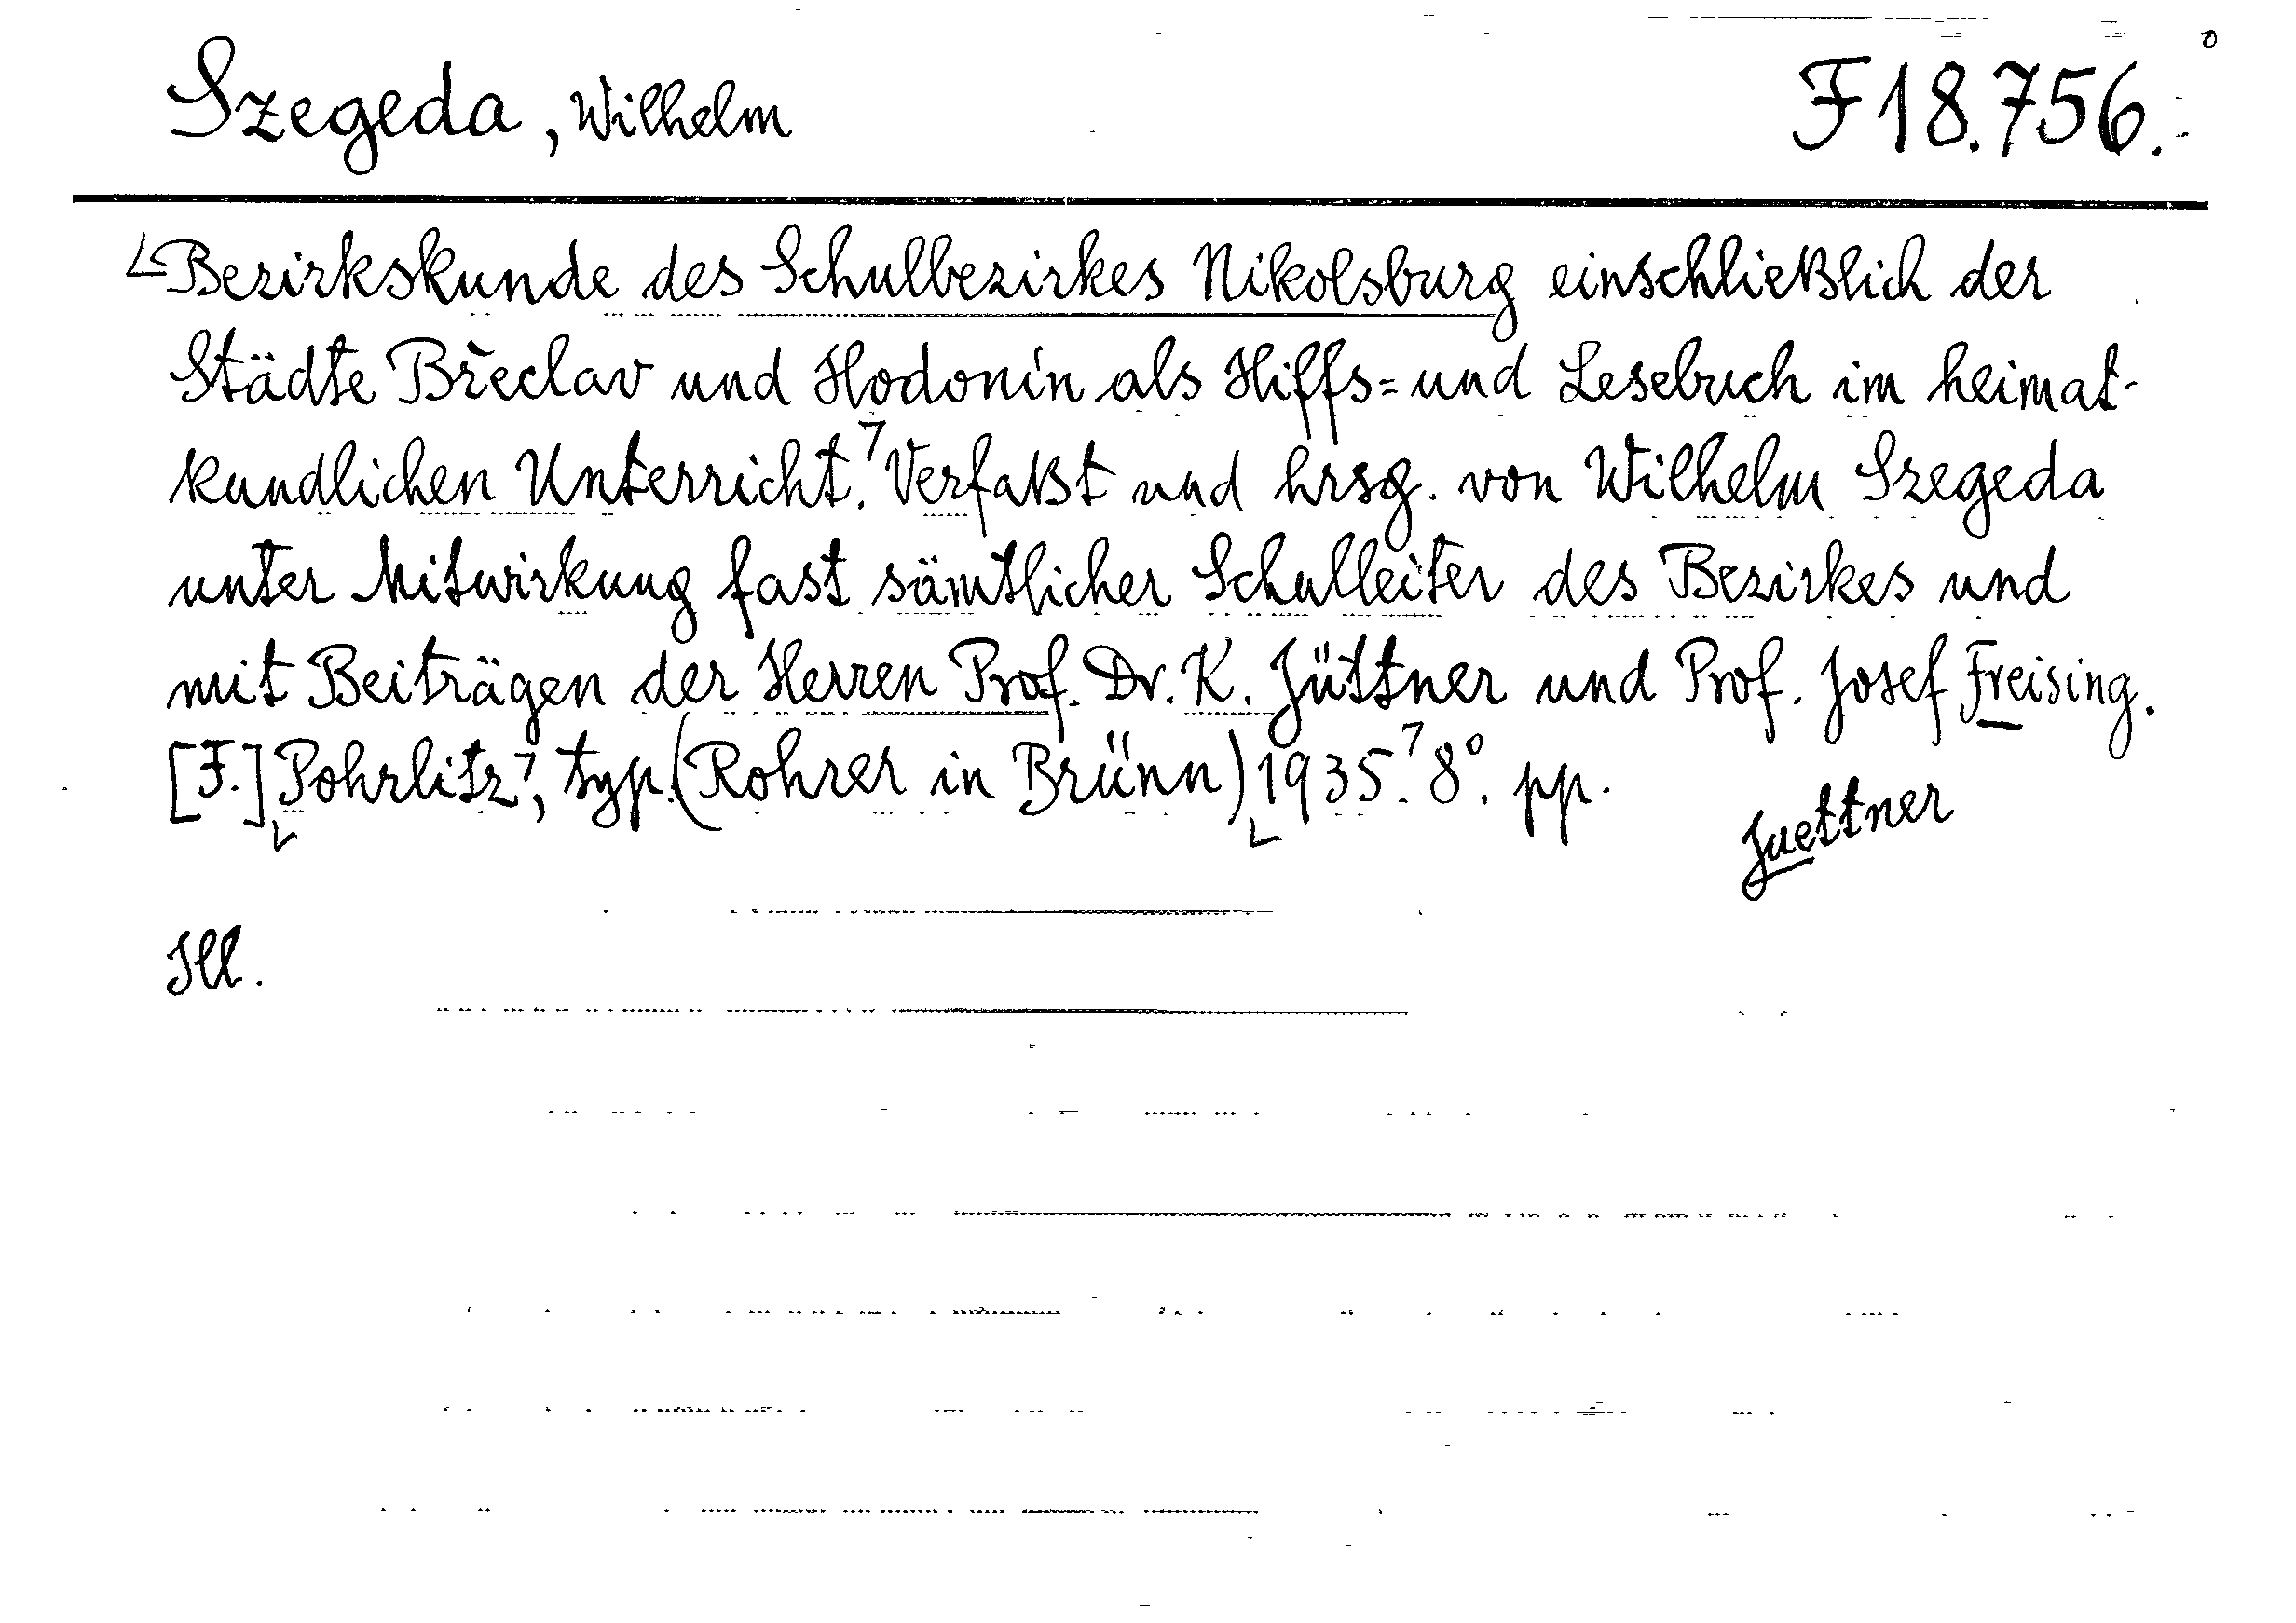 Szegeda, Wilhelm F 18.756.
Bezirkskunde des Schulbezirkes Nikolsburg einschließlich der
Städte Břeclav und Hodonín als Hilfs= und Lesebuch im heimat-
kundlichen Unterricht. Verfaßt und hrsg. von Wilhelm Szegeda
unter Mitwirkung fast sämtlicher Schulleiter des Bezirkes und
mit Beiträgen der Herren Prof. Dr. K. Jüttner und Prof. Josef Freising.
[F.] Pohrlitz, typ. (Rohrer in Brünn) 1935. 8°. pp.
Juettner
Ill.